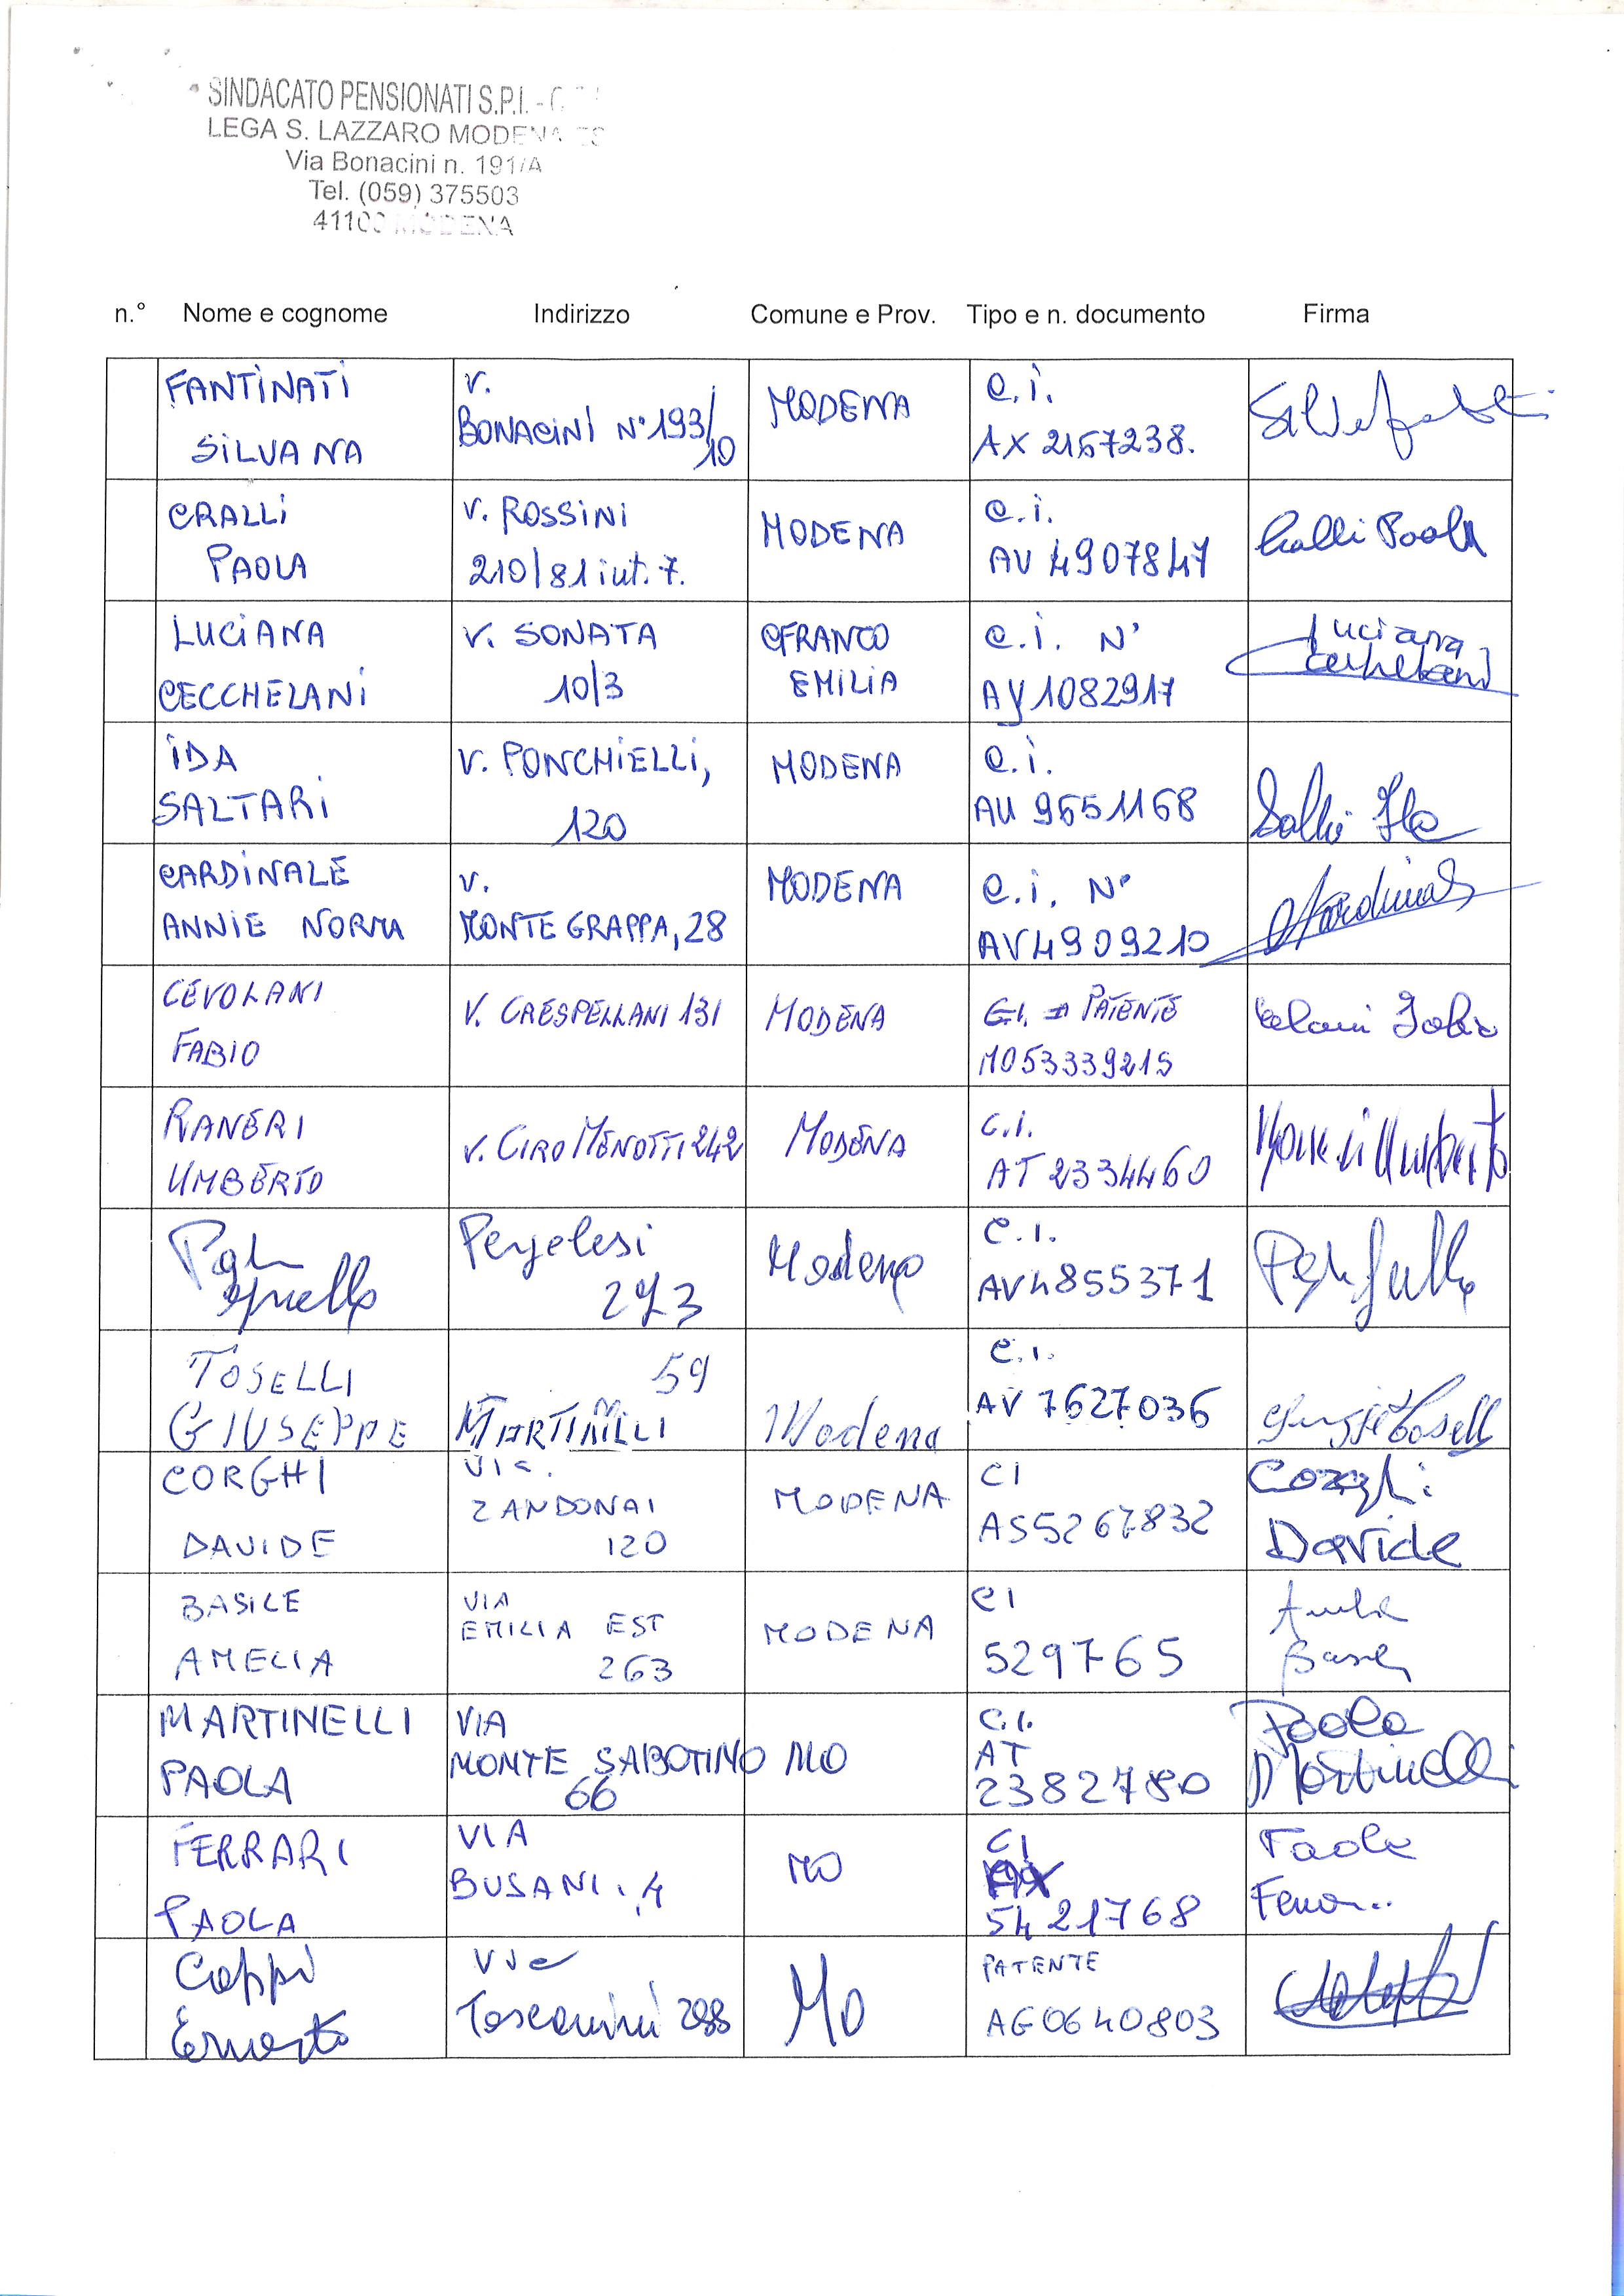 SINDACATO PENSIONATI S.P.I. -
LEGA S. LAZZARO MODENA
Via Bonacini n. 191/A
Tel. (059) 375503
41100 MODENA
n.° Nome e cognome Indirizzo Comune e Prov. Tipo e n. documento Firma
FANTINATI SILVANA v. BONACINI N° 193/10 MODENA C.I. AX 2157238.
CRALLI PAOLA V. ROSSINI 210/81 int. 7. MODENA C.I. AV 4907847 Cralli Paola
LUCIANA CECCHELANI V. SONATA 10/3 CFRANCO EMILIA C.I. N° AY 1082917 Luciana Cecchelani
IDA SALTARI V. PONCHIELLI, 120 MODENA C.I. AU 9651168
CARDINALE ANNIE NORMA V. MONTE GRAPPA, 28 MODENA C.I. N° AV4909210
CEVOLANI FABIO V. CRESPELLANI 131 MODENA PATENTE MO5333921S Fabio
RANERI UMBERTO V. CIRO MENOTTI 242 MODENA C.I. AT 2334460 Raneri Umberto
Pergolesi 273 Modena C.I. AV4855371
TOSELLI GIUSEPPE 59 Modena C.I. AV 7627036 Giuseppe Toselli
CORGHI DAVIDE VIA ZANDONAI 120 MODENA CI AS5267832 Corghi Davide
BASILE AMELIA VIA EMILIA EST 263 MODENA CI 529765 Amelia Basile
MARTINELLI PAOLA VIA MONTE SABOTINO 66 MO C.I. AT 2382780 Paola Martinelli
FERRARI PAOLA VIA BUSANI, 4 MO CI 5421768 Paola Ferrari
Coppi Ernesto Via Toscanini 288 MO PATENTE AG0640803